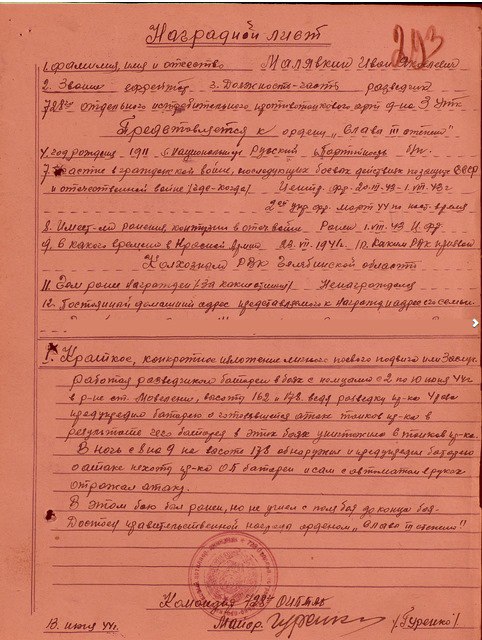 293
Наградной лист
1. Фамилия, имя и отчество Малявкин Иван Яковлевич
2. Звание ефрейтор 3. Должность-часть разведчик
728го отдельного истребительного противотанкового арт. д-на 3 Утк
Представляется к ордену „Слава III степени"
4. год рождения 1911 5. Национальнос Русский 6 Партийность б/п.
7. Участие в гражданской войне, последующих боевых действиях по защите СССР
и отечественной войне (где-когда) фр. 20.III-43 - 1.VIII-43 г
2ой укр. фр. март 44 по наст. время
8. Имеет-ли ранения, контузии в отеч. войне Ранен 1.VIII.43 фр
9. С какого времени в Красной Армии VIII. 1941г. 10. Каким РВК призван
РВК Челябинской области
11. Чем ранее награжден (за какие отличия) Ненагражден
12. Постоянный домашний адрес представляемого к награжд и адрес его семьи
I. Краткое, конкретное изложение личного боевого подвига или заслуг
работая разведчиком батареи в боях с немцами с 2 по 10 июня 44г
в р-не ст. высоты 162 и 178. ведя разведку пр-ка
предупредил батарею о готовящейся атаке танков пр-ка в
результате чего батарея в этих боях уничтожила 6 танков пр-ка.
В ночь с 8 на 9 на высоте 178 обнаружил и предупредил батарею
о атаке пехоты пр-ка ОП батареи и сам с автоматом в руках
отражал атаку.
В этом бою был ранен, но не ушел с поля боя до конца боя.
Достоин правительственной награды орденом „Слава III степени"
Командир 728го ОИПТДн
Майор. Гуренко /Гуренко/
13. июня 44г.